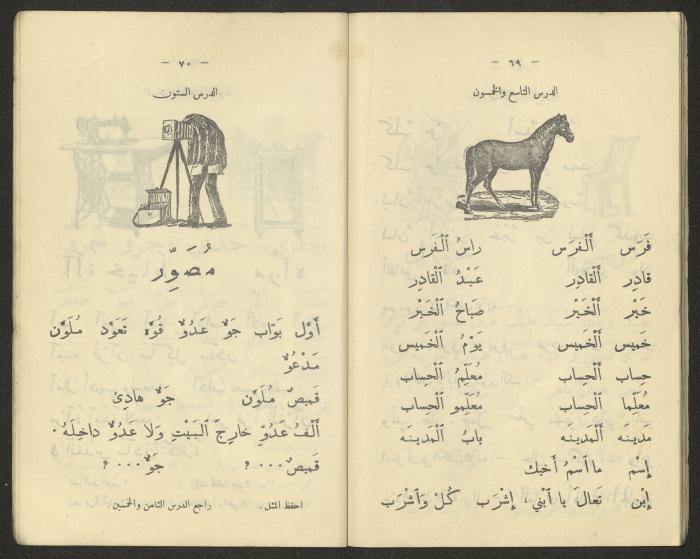 - ٦٩ -
الدرس التاسع والخمسون
فَرَس أَلْفَرَس راسُ ٱلْفَرَس
قادِر أَلْقادِر عَبْدُ ٱلْقادِر
خَيْر أَلْخَيْر صَباحُ ٱلْخَيْر
خَميس أَلْخَميس يَوْمُ ٱلْخَميس
حِساب أَلْحِساب مُعَلِّمُ ٱلْحِساب
مُعَلِّما أَلْحِساب مُعَلِّمو ٱلْحِساب
مَدينَه أَلْمَدينَه بابُ ٱلْمَدينَه
إِسم ما ٱسْمُ أَخيك
إِبْن تَعالَ يا ٱبْني إِشْرَب كُلْ وَٱشْرَب
- ٧٠ -
الدرس الستون
مُصَوِّر
أَوَّل بَوّاب جَوٌّ عَدُوٌّ قُوَّه تَعَوَّد مُلَوَّن
مَدْعُوٌّ
قَميصٌ مُلَوَّن جَوٌّ هادِئ
أَلْفُ عَدُوٍّ خارِجَ ٱلْبَيْتِ وَلا عَدُوٌّ داخِلَهُ.
قَميصٌ....؟ جَوٌّ....؟
احفظ المثل. راجع الدرس الثامن والخمسين.